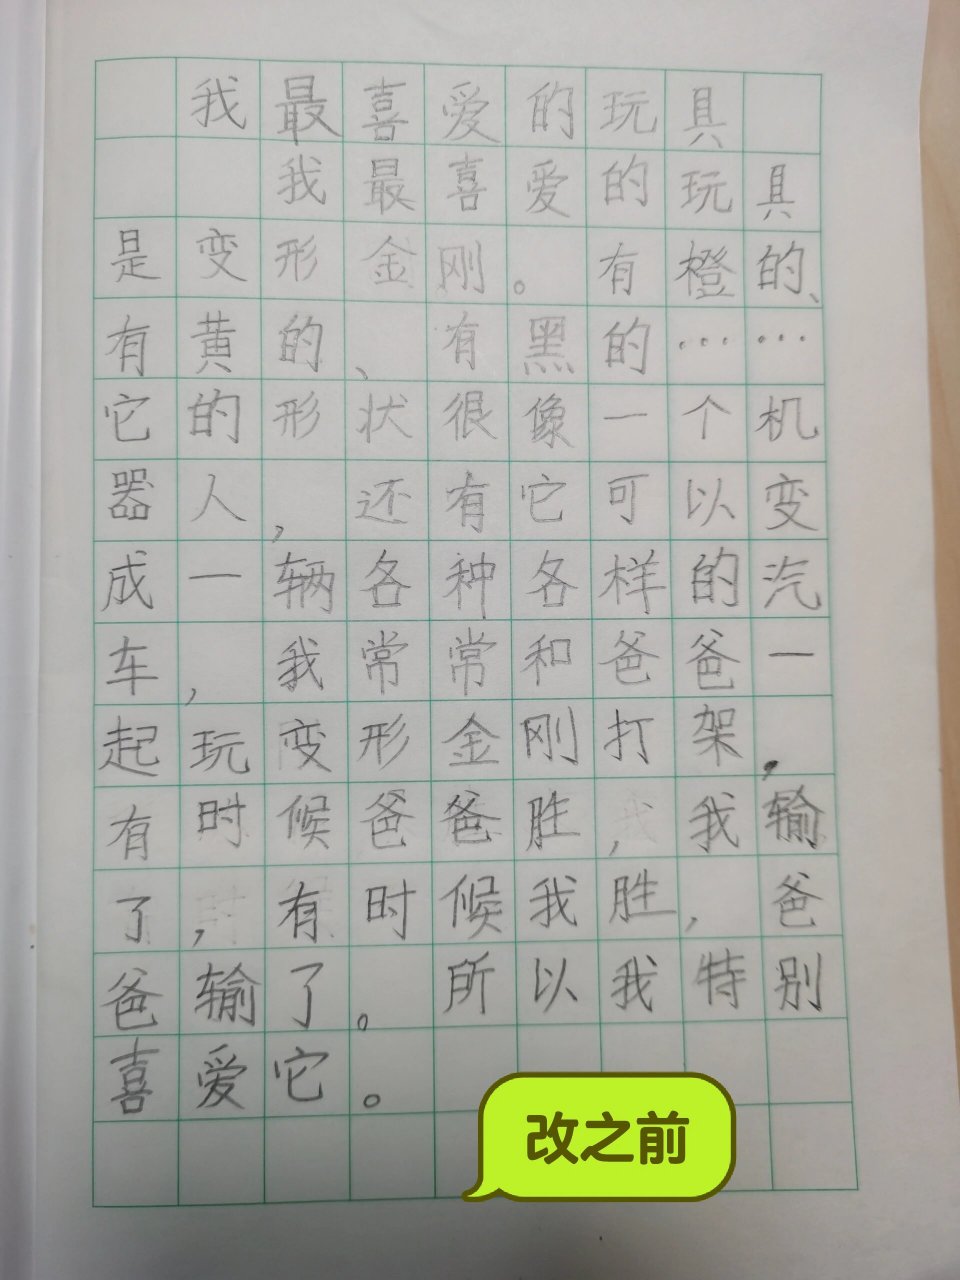 我最喜爱的玩具
我最喜爱的玩具
是变形金刚。有橙的、
有黄的、有黑的……
它的形状很像一个机
器人,还有它可以变
成一辆各种各样的汽
车,我常常和爸爸一
起玩变形金刚打架,
有时候爸爸胜,我输
了,有时候我胜,爸
爸输了。所以我特别
喜爱它。
改之前